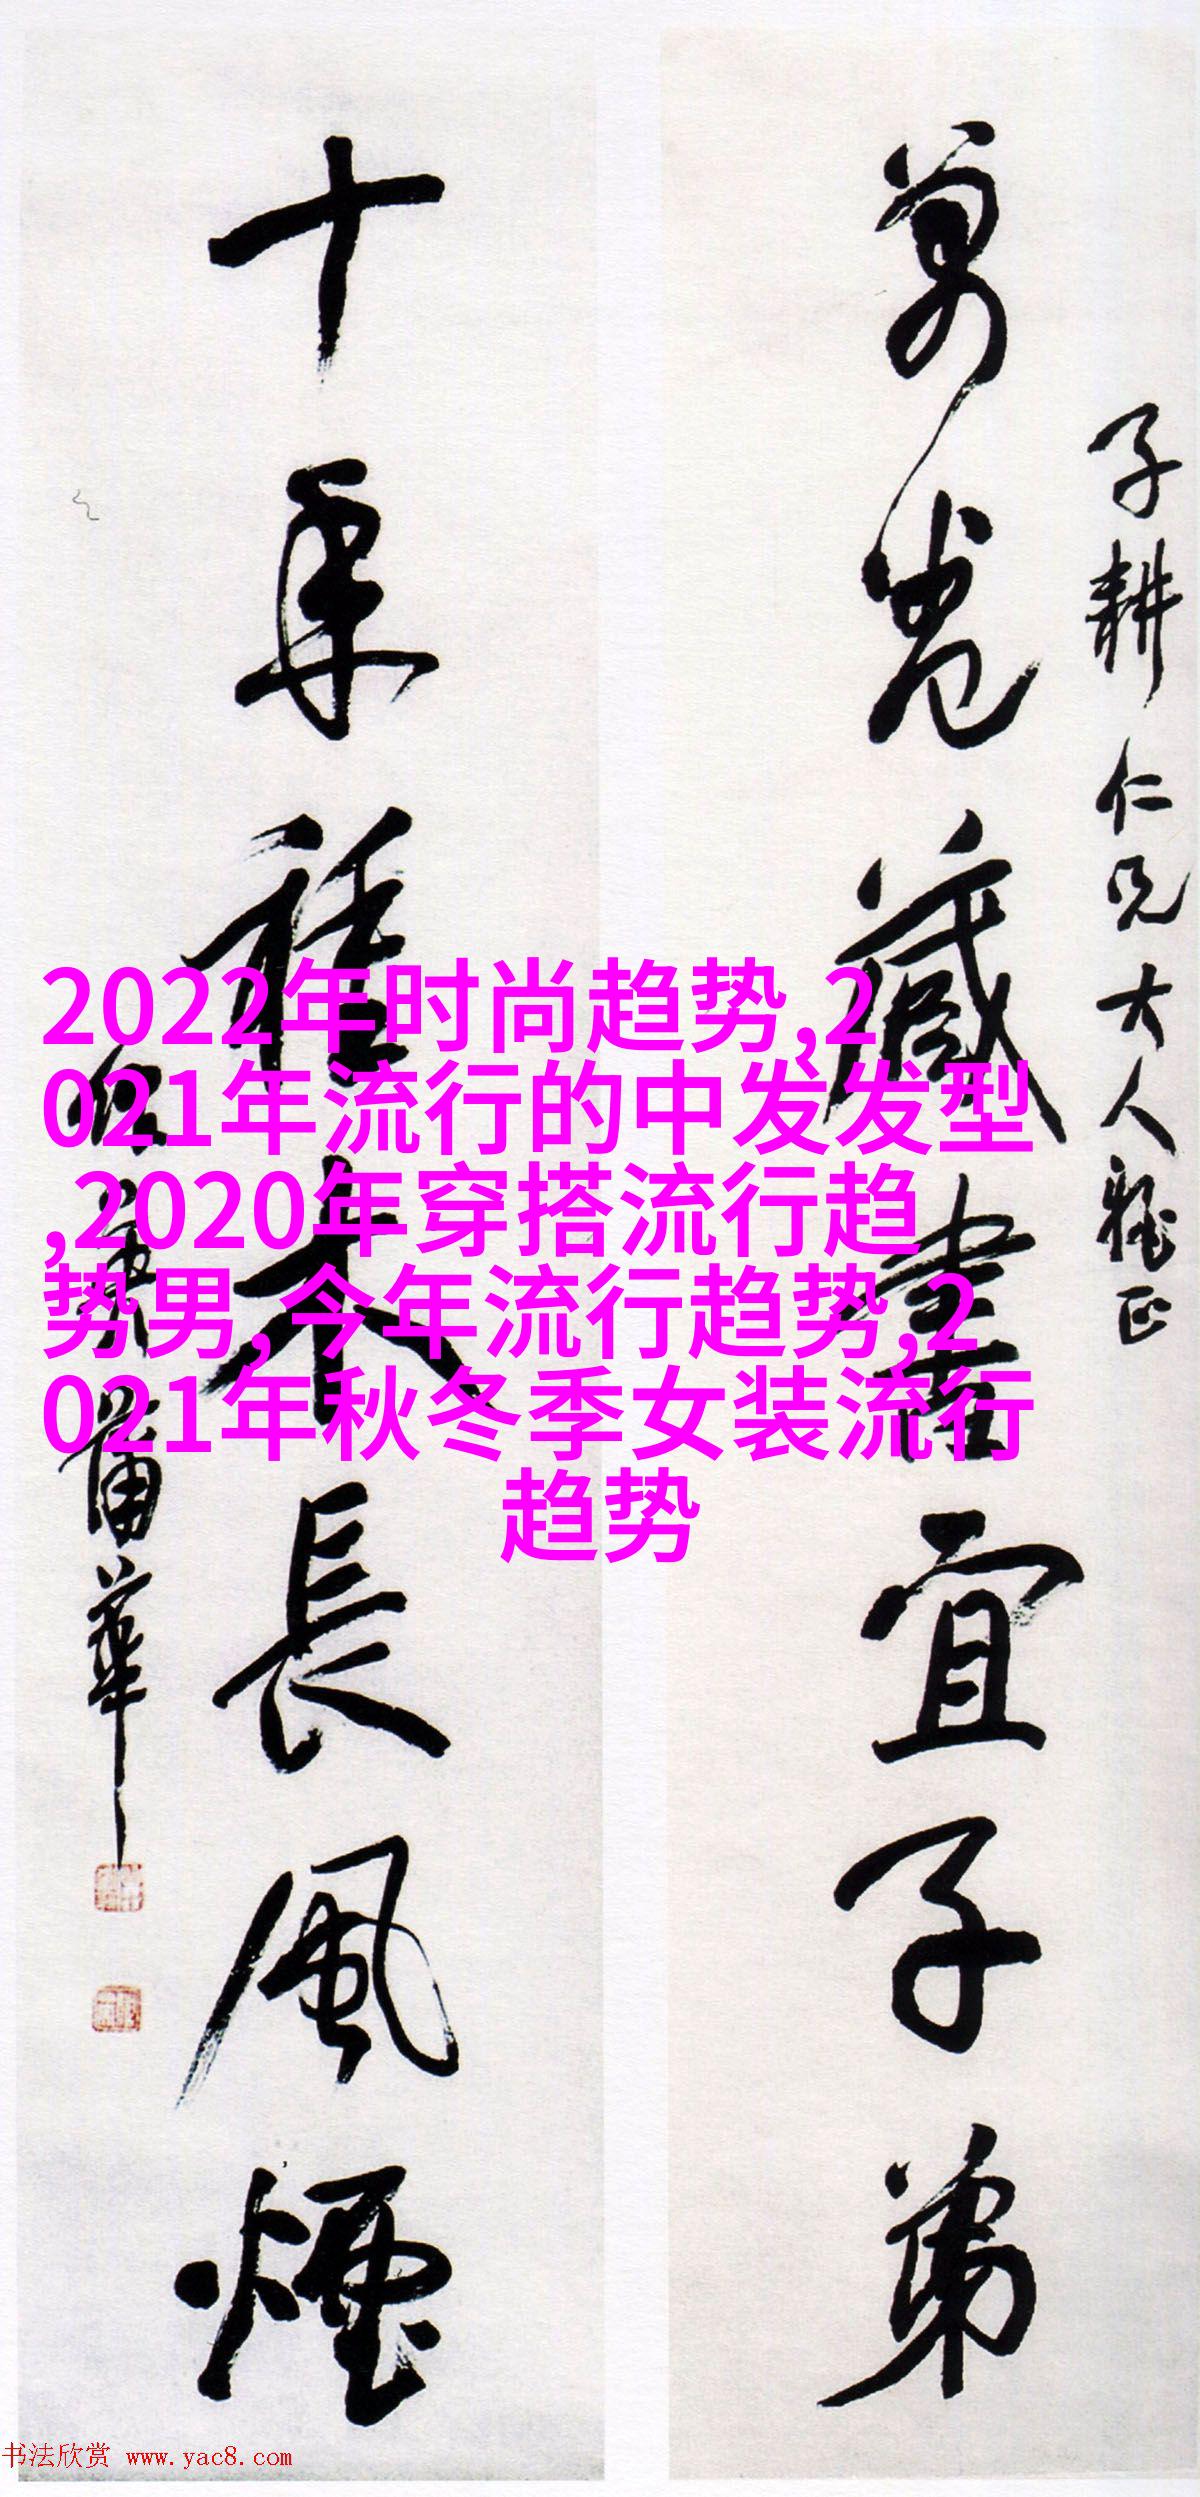 子耕仁兄大人雅正
萬卷藏書宜子弟
十年種木長風煙
蒲華
2022年时尚趋势,2
021年流行的中发发型
,2020年穿搭流行趋
势男,今年流行趋势,2
021年秋冬季女装流行
趋势
书法欣赏 www.yac8.com